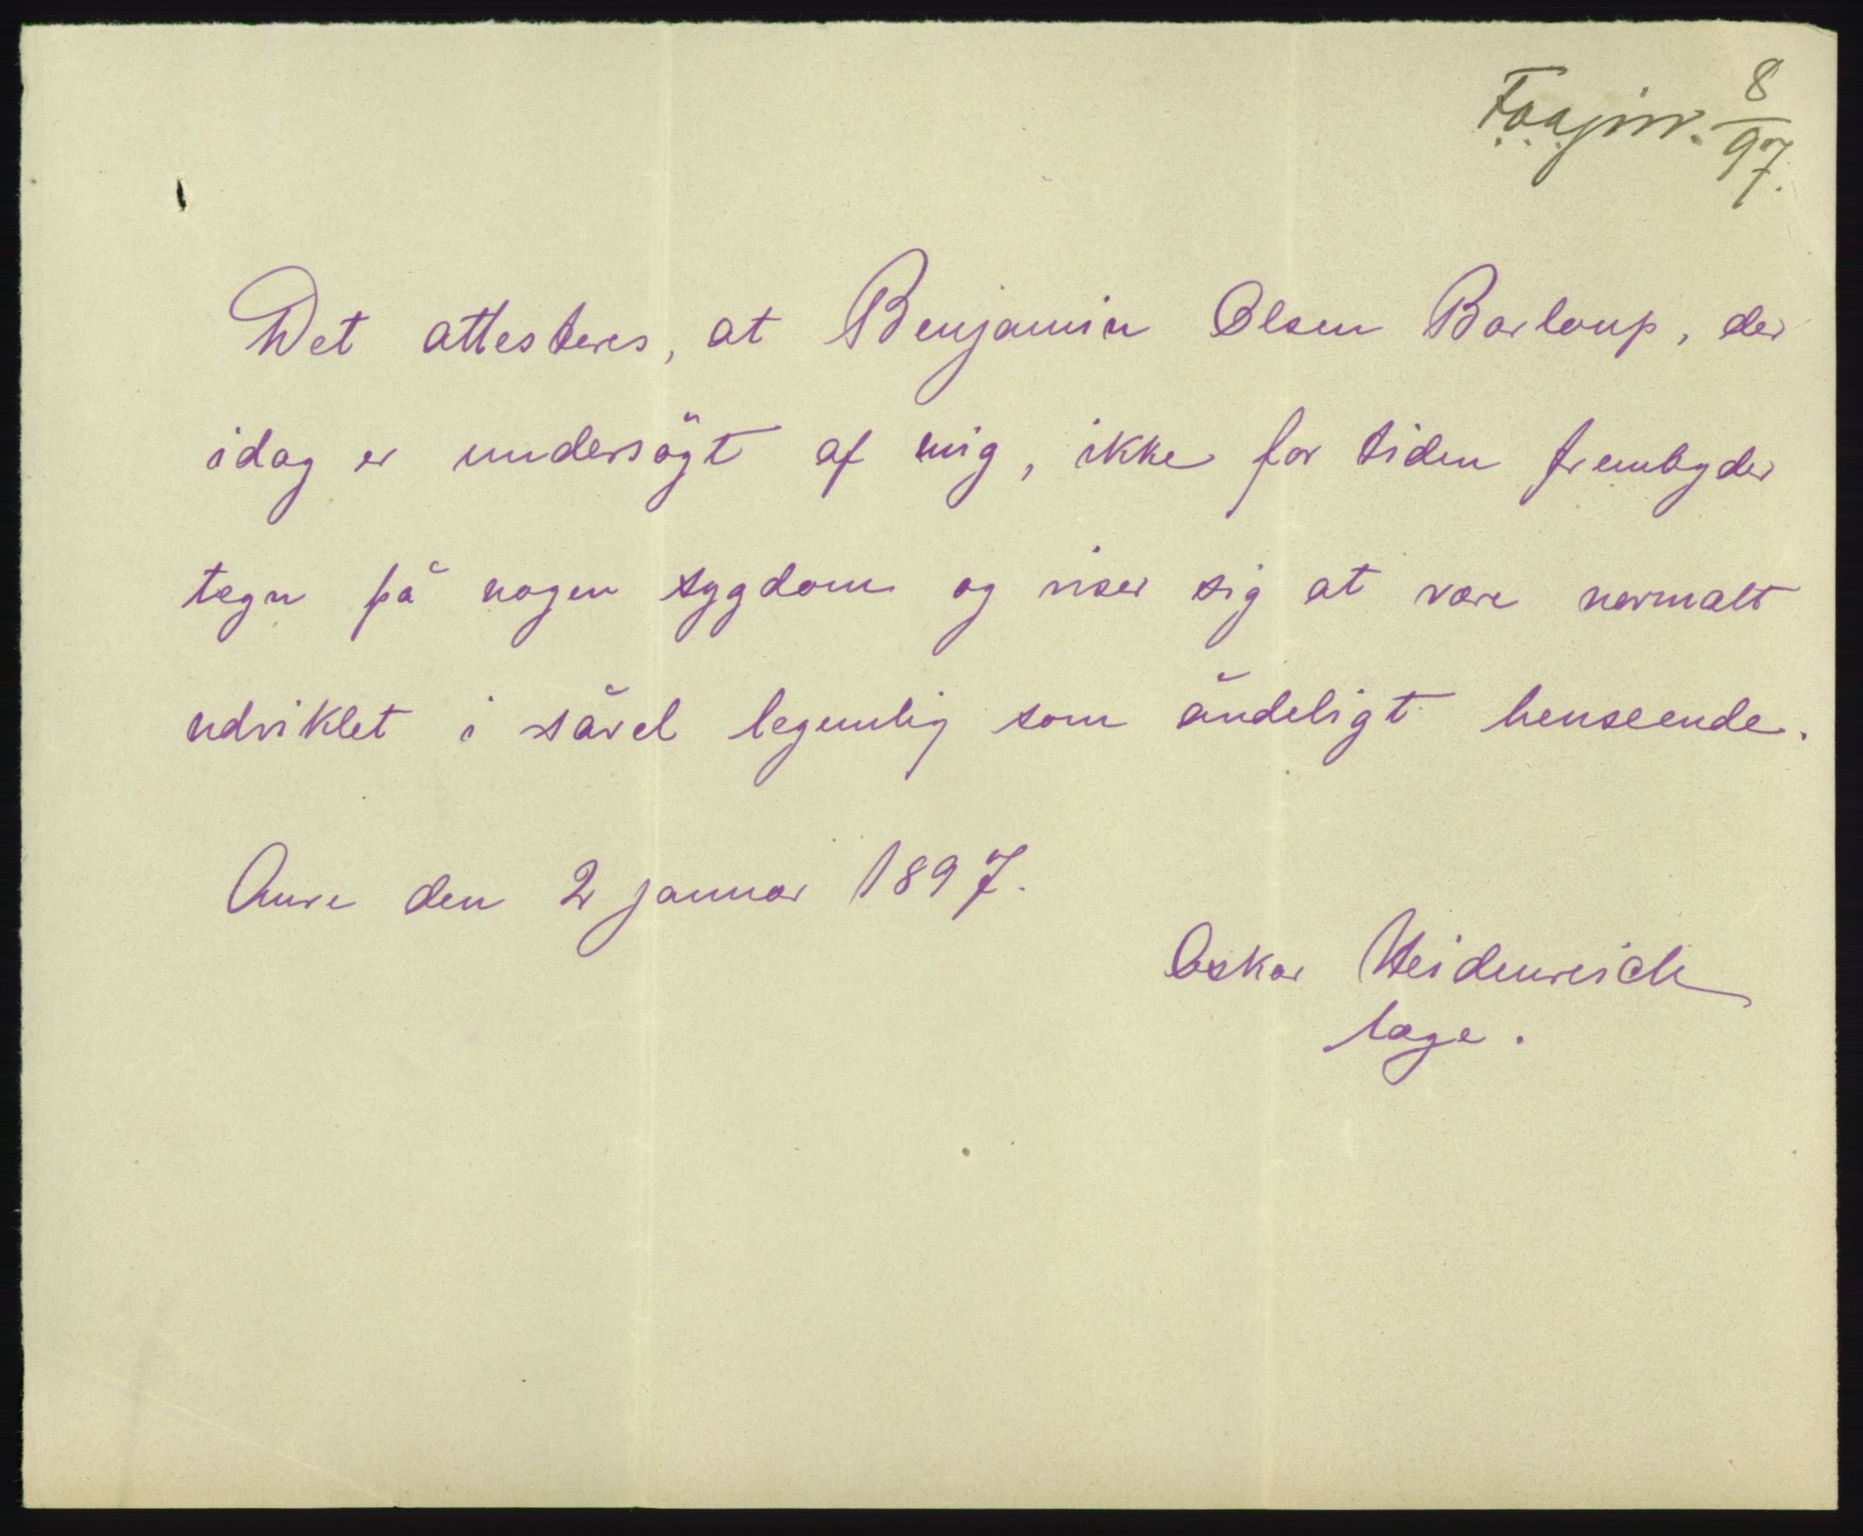 8
97.
Det attesteres, at Benjamin Olsen Barloup, der
idag er undersögt af mig, ikke for tiden frembyder
tegn på nogen sygdom og viser sig at være normalt
udviklet i såvel legemlig som åndeligt henseende.
Aure den 2 januar 1897.
Oskar Heidenreich
læge.